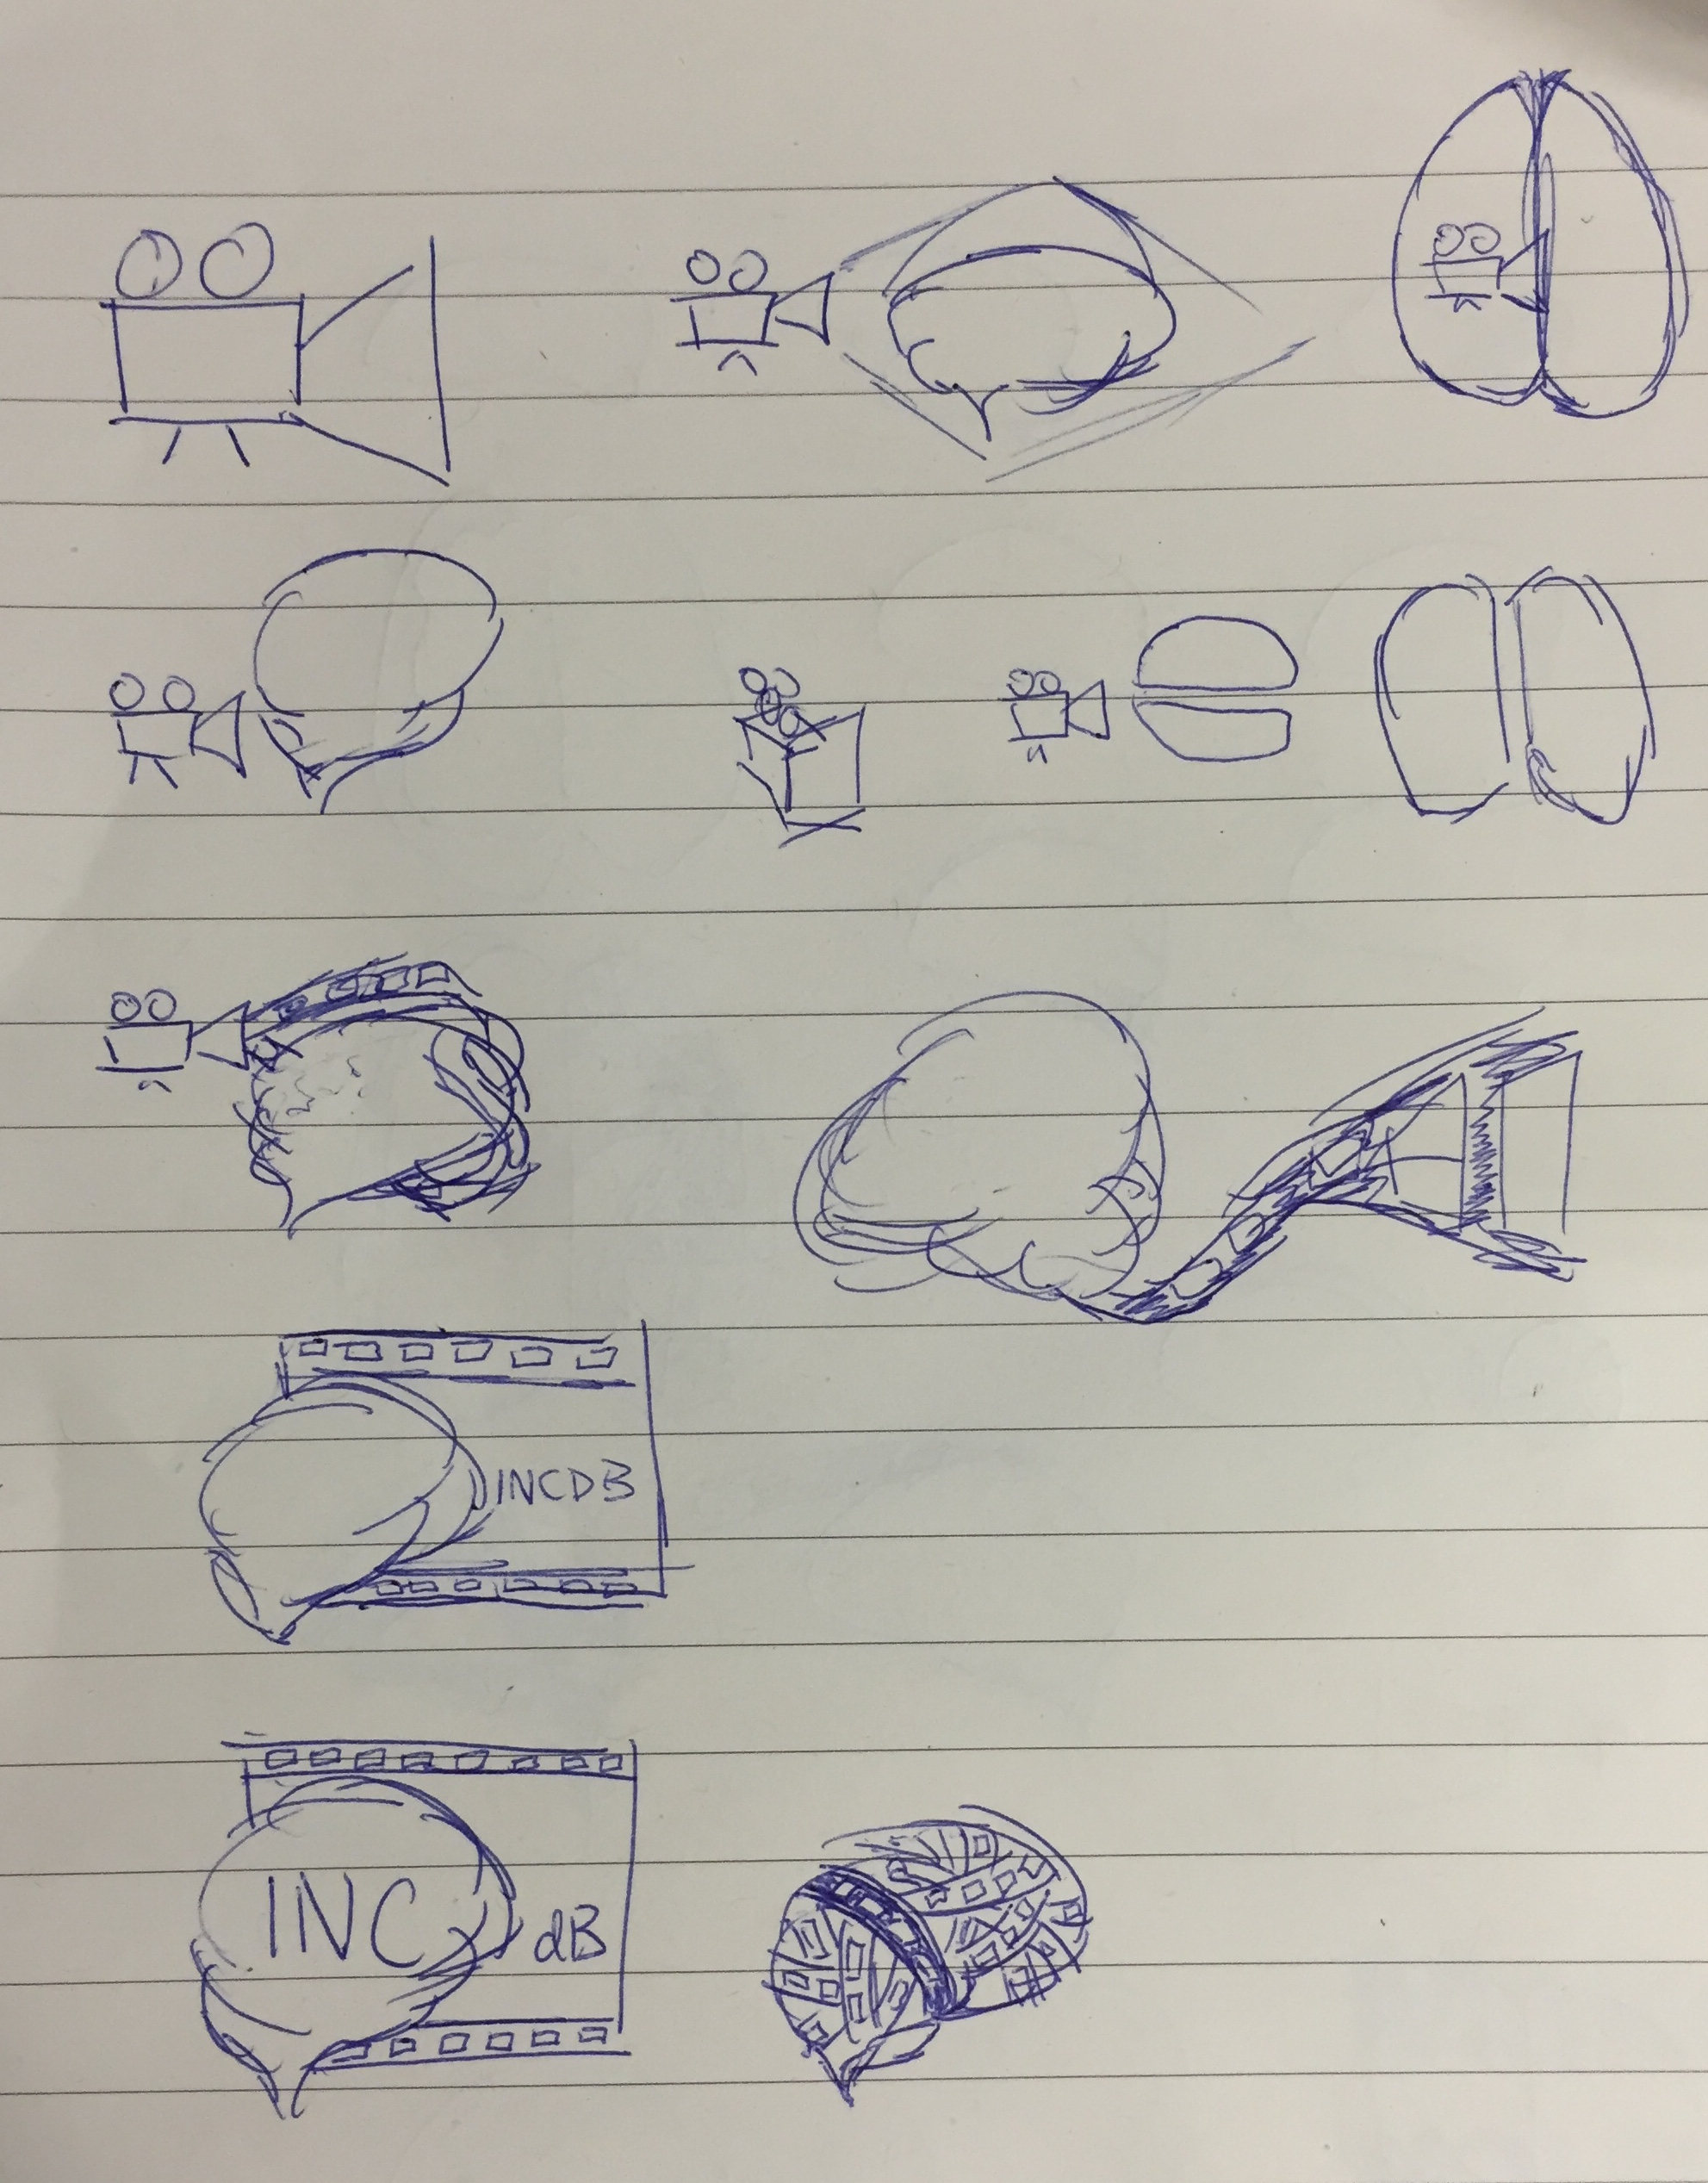 INCDB
INC
dB